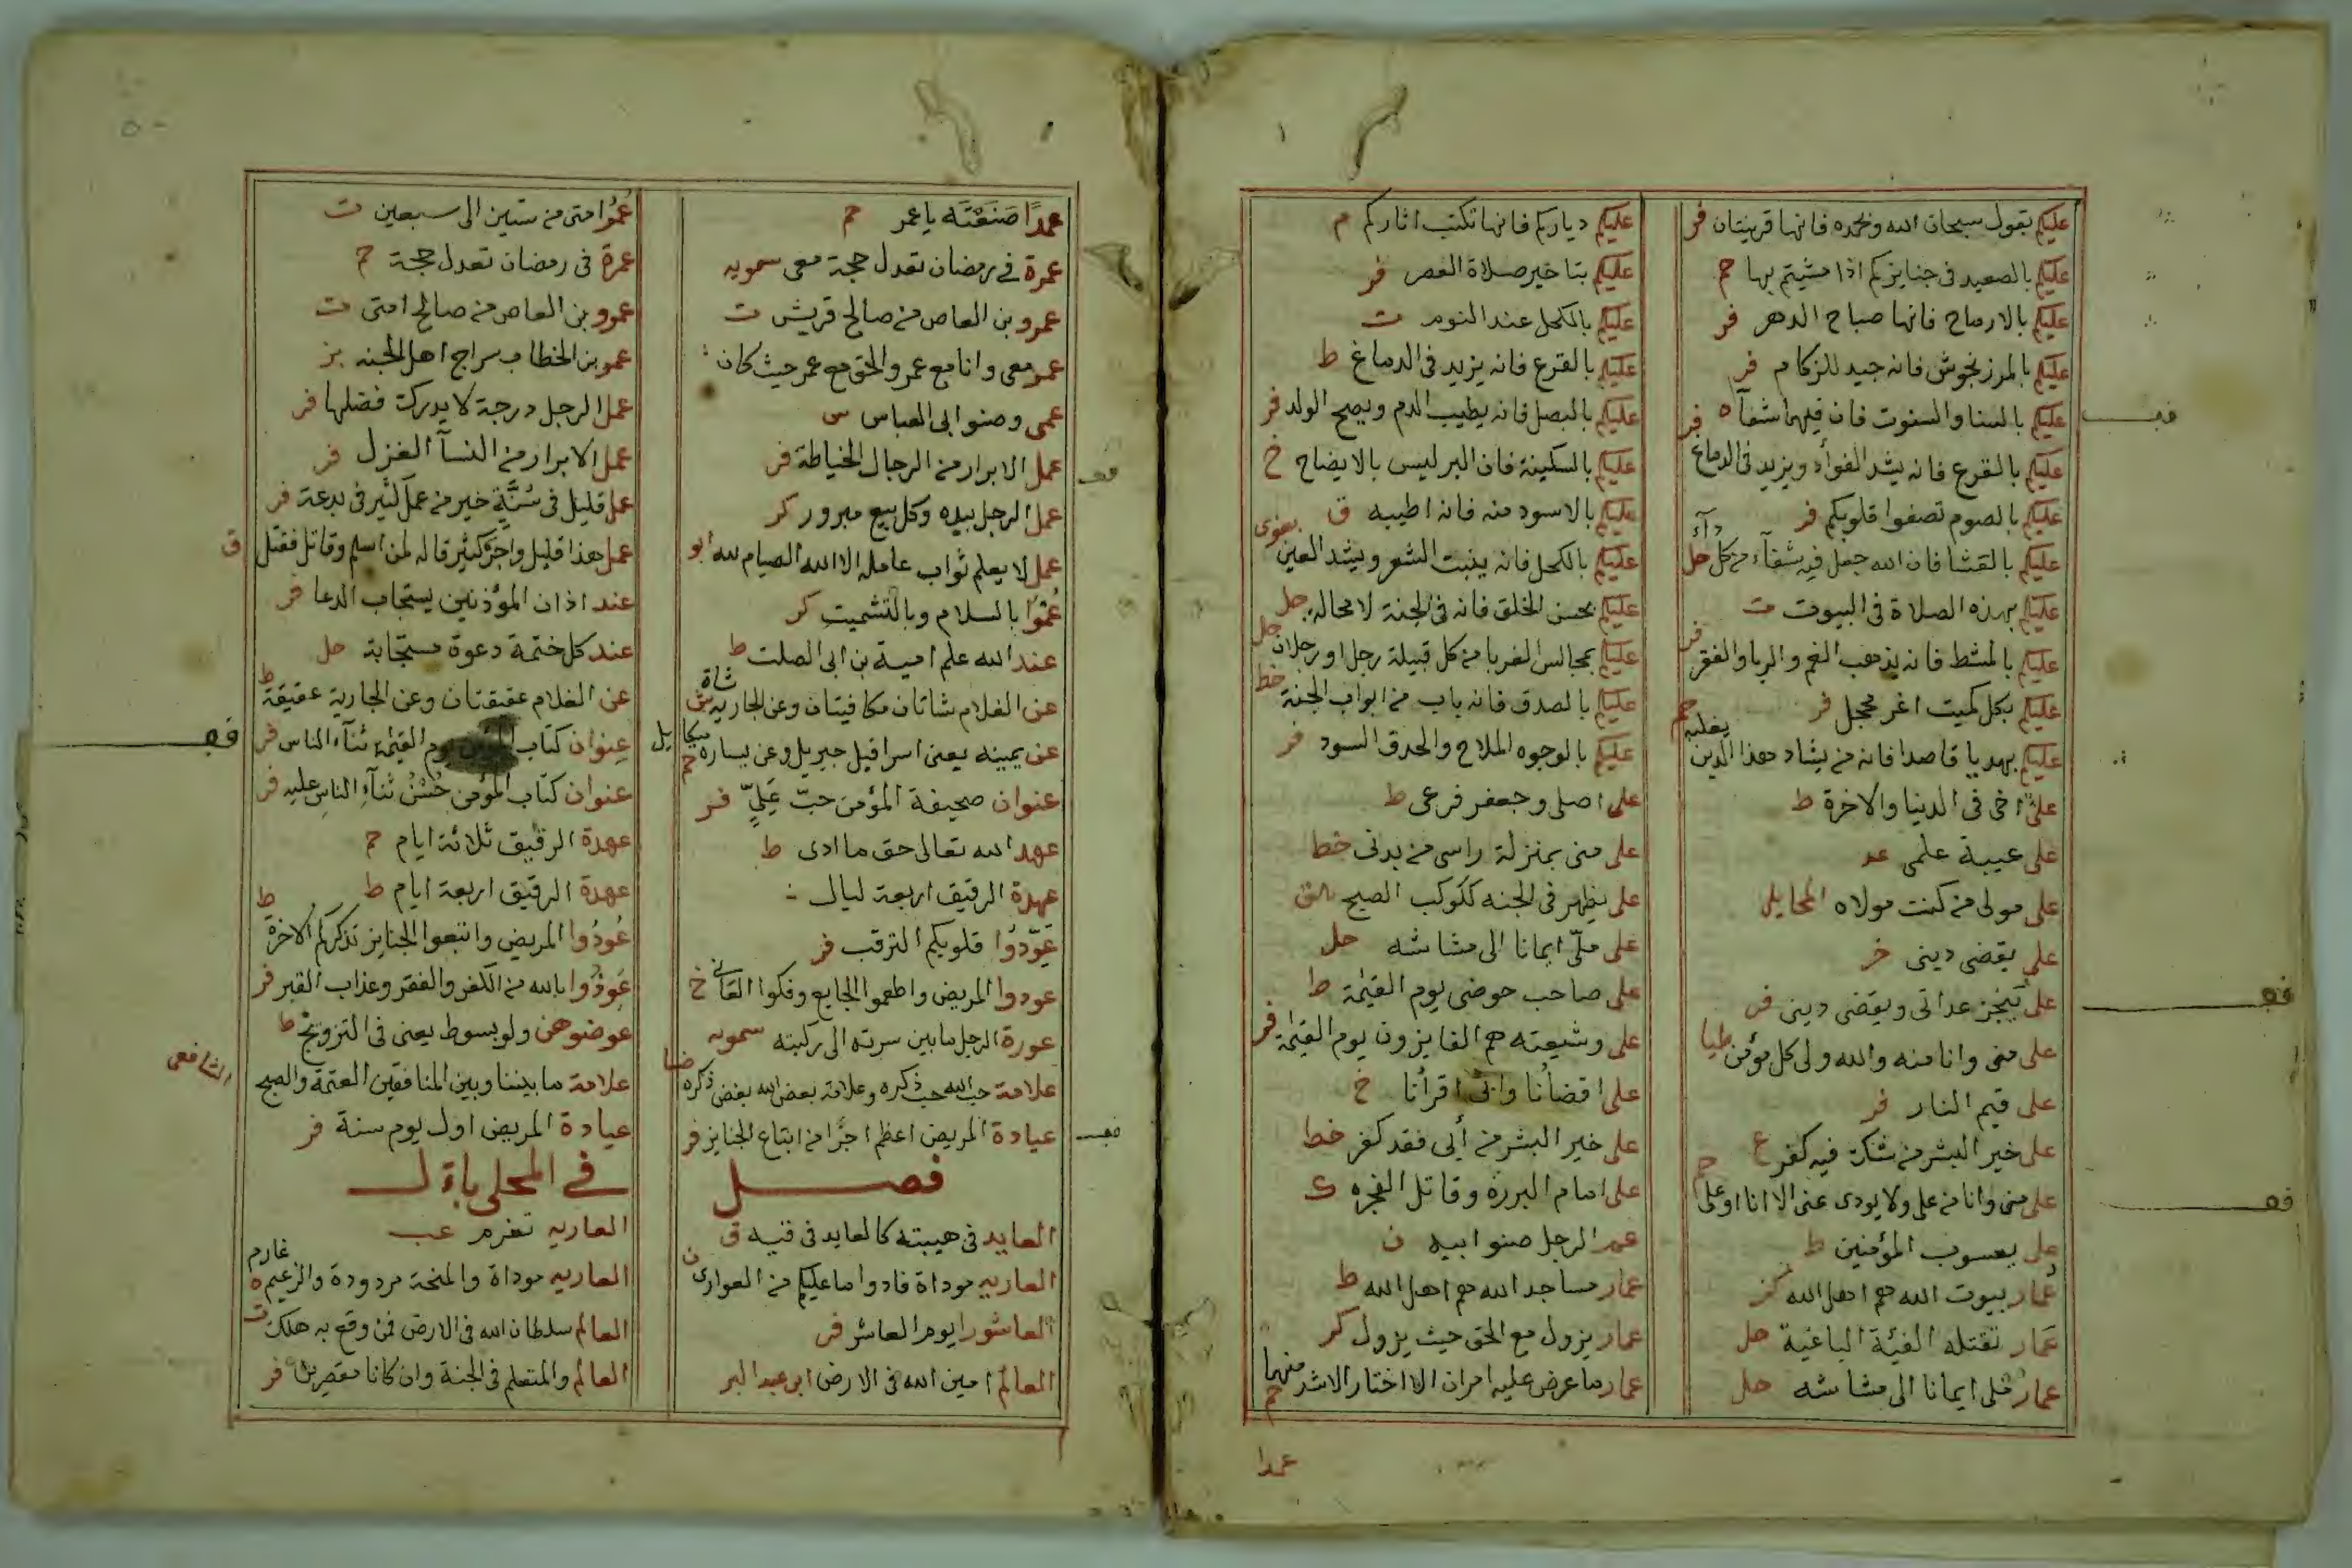 عليكم بقول سبحان الله وبحمده فانها قرينتان فر
عليكم بالصعيد فى جنايزكم اذا مشيتم بها حم
عليكم بالارماح فانها صباح الدهر فر
عليكم بالمرزنجوش فانه جيد للزكام فر
عليكم بالسنا والسنوت فان فيهما شفآء فر
عليكم بالقرع فانه يشد الفوأد ويزيد فى الدماغ
عليكم بالصوم تصفوا قلوبكم فر
عليكم بالقشا فان الله جعل فيه شفآء من كل دآء حل
عليكم بهذه الصلاة فى البيوت ت
عليكم بالمشط فانه يذهب الغم والربا والفقر فر
عليكم بكل كميت اغر محجل فر
عليكم بهديا قاصدا فانه من يشاد هذا الدين يغلبه حم
على اخى فى الدنيا والاخرة ط
على عيبة علمى عد
على مولى من كنت مولاه المحايلى
على يقضى دينى خر
على ينجز عداتى ويقضى دينى فر
على منى وانا منه والله ولى كل مؤمن طيا
على قيم النار فر
على خير البشر من شك فيه كفر ع
على منى وانا من على ولا يودى عنى الا انا او على حم
على يعسوب المؤمنين ط
عمار بيوت الله هم اهل الله
عمار تقتله الفئة الباغية حل
عمار ملى ايمانا الى مشاشه حل
عليكم دياركم فانها تكتب اثاركم م
عليكم بتاخير صلاة العصر فر
عليكم بالكحل عند النوم ت
عليكم بالقرع فانه يزيد فى الدماغ ط
عليكم بالبصل فانه يطيب الدم ويصح الولد فر
عليكم بالسكينة فان البر ليس بالايضاح خ
عليكم بالاسود منه فانه اطيبه ق
عليكم بالكحل فانه ينبت الشعر ويشد العين بغوى
عليكم بحسن الخلق فانه فى الجنة لا محاله حل
عليكم بمجالس الغربا من كل قبيلة رجل او رجلان حل
عليكم بالصدق فانه باب من ابواب الجنة خط
عليكم بالوجوه الملاح والحدق السود فر
على اصلى وجعفر فرعى ط
على منى بمنزلة راسى من بدنى خط
على يظهر فى الجنه ككوكب الصبح
على ملّى ايمانا الى مشاشه حل
على صاحب حوضى يوم القيمة ط
على وشيعته هم الفايزون يوم القيمة فر
على اقضانا وابى اقرأنا خ
على خير البشر من أبى فقد كفر خط
على امام البررة وقاتل الفجره ك
عم الرجل صنو ابيه ن
عمار مساجد الله هم اهل الله ط
عمار يزول مع الحق حيث يزول كر
عمار ما عرض عليه امران الا اختار الاشد منهما حم
عمدا
عمدًا صَنَعْتَه يا عمر حم
عمرة فى رمضان تعدل حجة معى سمويه
عمرو بن العاص من صالح قريش ت
عمر معى وانا مع عمر والحق مع عمر حيث كان
عمى وصنو ابى العباس س
عمل الابرار من الرجال الخياطة فر
عمل الرجل بيده وكل بيع مبرور كر
عمل لا يعلم ثواب عامله الا الله الصيام لله ابو
عُمّوا بالسلام وبالتشميت كر
عند الله علم امية بن ابى الصلت ط
عن الغلام شاتان مكافيتان وعن الجاريه شاة ش
عن يمينه يعنى اسرافيل جبريل وعن يساره ميكاييل حم
عنوان صحيفة المؤمن حبّ عَلِيٍّ فر
عهد الله تعالى حق ما ادى ط
عهدة الرقيق اربعة ليال
عَوّدُوا قلوبكم الترقب فر
عودوا المريض واطعموا الجايع وفكوا العانى خ
عورة الرجل ما بين سرته الى ركبته سمويه
علامة حب الله حب ذكره وعلامة بغض الله بغض ذكره
عيادة المريض اعظم اجرًا من اتباع الجنايز فر
فصل
العايد فى هيبته كالعايد فى قيه ق
العاريه موداة فادوا ما عليكم من العوارى ن
العاشورا يوم العاشر فر
العالم امين الله فى الارض ابن عبد البر
عُمُرُ امتى من ستين الى سبعين ت
عمرة فى رمضان تعدل حجة حم
عمرو بن العاص من صالح امتى ت
عمر بن الخطاب سراج اهل الجنه بز
عمل الرجل درجة لا يدرك فضلها فر
عمل الابرار من النسآ الغزل فر
عمل قليل فى سُنَّةٍ خير من عمل كثير فى بدعة فر
عمل هذا قليل واجرَ كثير قاله لمن اسلم وقاتل فقتل ق
عند اذان المؤذنين يستجاب الدعا فر
عند كل ختمة دعوة مستجابة حل
عن الغلام عقيقتان وعن الجارية عقيقة ط
عنوان كتاب المؤمن يوم القيمة ثنآء الناس فر
عنوان كتاب المؤمن حُسْنُ ثنآءِ الناس عليه فر
عهدة الرقيق ثلاثة ايام حم
عهدة الرقيق اربعة ايام ط
عُودُوا المريض واتبعوا الجنايز تذكركم الاخرة ط
عَوِذُوا بالله من الكفر والفقر وعذاب القبر فر
عوضوهن ولو بسوط يعنى فى التزويج ط
علامة ما بيننا وبين المنافقين العتمة والصبح الشافعى
عيادة المريض اول يوم سنة فر
فى المحلى باﻟ
العاريه تغرم عب
العاريه موداة والمنحة مردودة والزعيم غارم ه
العالم سلطان الله فى الارض فمن وقع به هلك ت
العالم والمتعلم فى الجنة وان كانا مقصرين فر